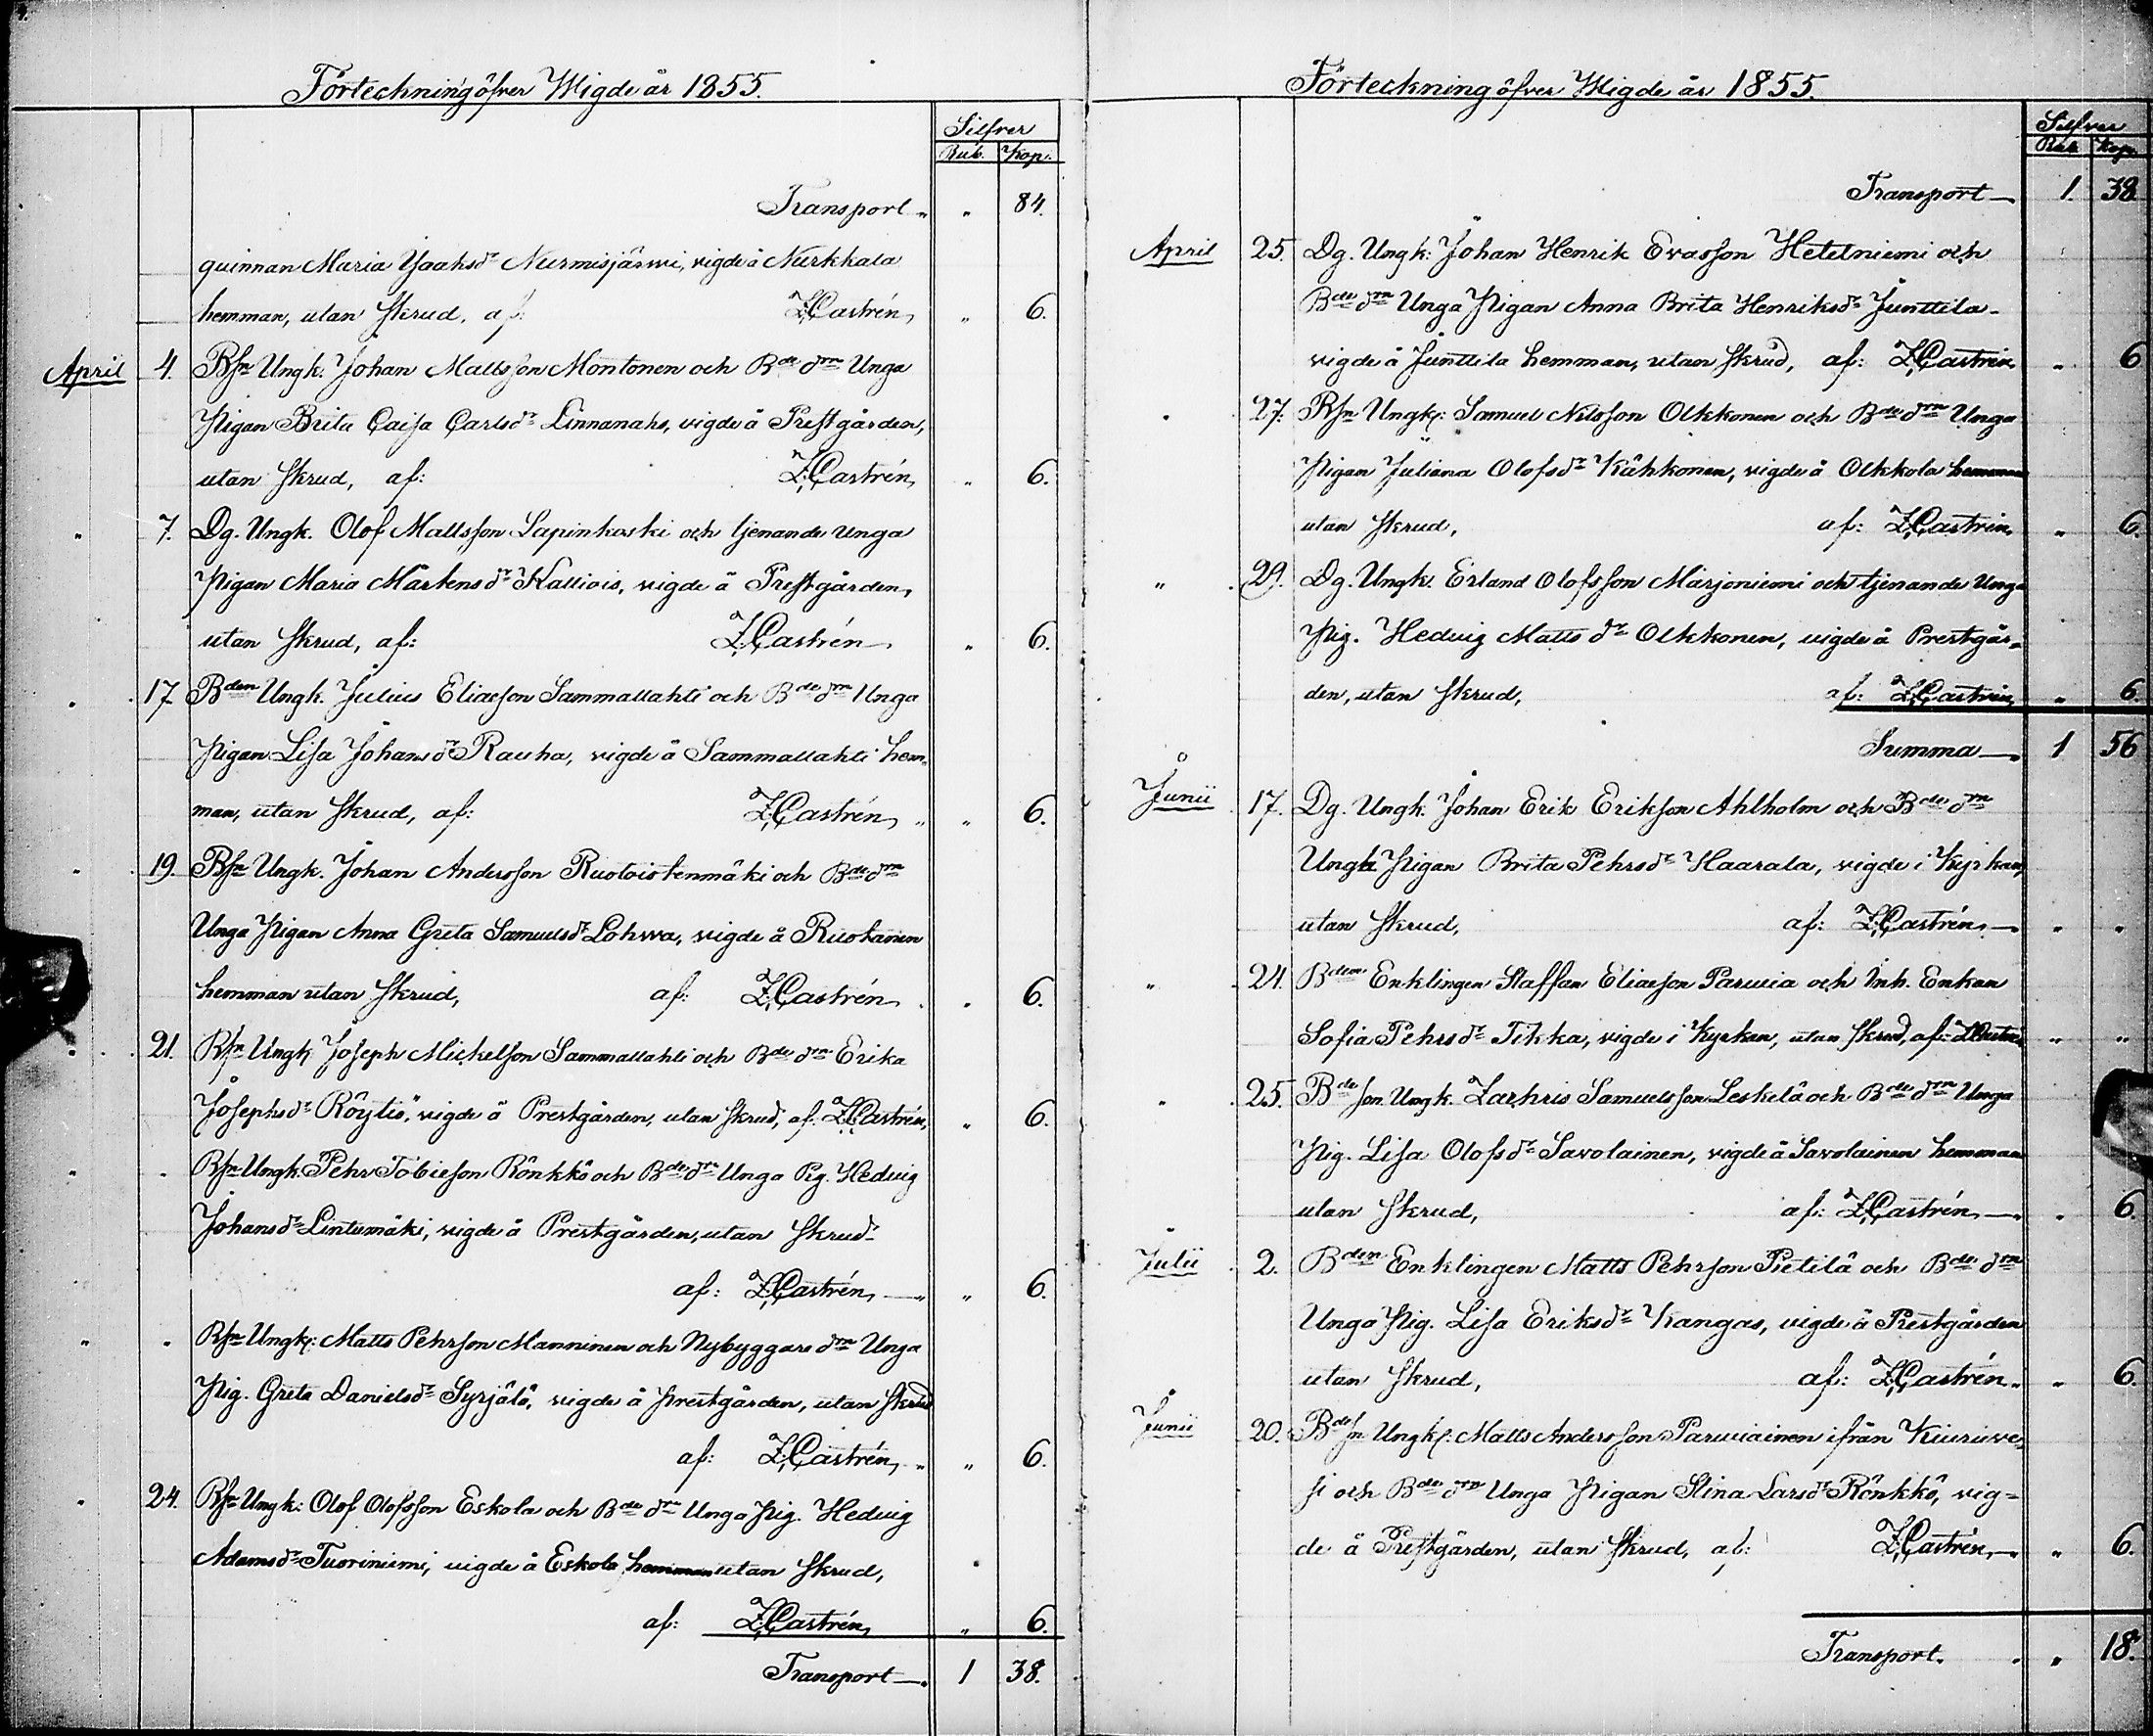 Förteckning öfver Wigde år 1855.
Silfver
Rub. Kop.
Transport „ „ 84.
quinnan Maria Isaksdr Nurmisjärwi, vigde å Nurkkala
hemman, utan skrud, af: Z.Castrén, „ 6.
April 4. Bsn Ungk. Johan Mattsson Montonen och Bde drn Unga
Pigan Brita Caisa Carlsdr Linnanaho, vigde å Prestgården,
utan skrud, af: Z.Castrén, „ 6.
„ 7. Dg. Ungk. Olof Mattsson Lapinkoski och tjenande Unga
Pigan Maria Mårtensdr Kalliois, vigde å Prestgården,
utan skrud, af: Z.Castrén „ 6.
„ 17 Bden Ungk. Julius Eliasson Sammallahti och Bde drn Unga
Pigan Lisa Johansdr Rauha, vigde å Sammallahti hem-
man, utan skrud, af: Z.Castrén, „ „ 6.
„ 19. Bsn Ungk. Johan Andersson Ruotoistenmäki och Bde drn
Unga Pigan Anna Greta Samuelsdr Lohwa, vigde å Ruokanen
hemman utan skrud, af: Z.Castrén. „ 6.
„ 21. Bsn Ungk. Joseph Michelsson Sammallahti och Bde drn Erika
Josephsdr Röytiö, vigde å Prestgården, utan skrud, af. Z.Castrén, „ 6.
„ „ Bsn Ungk. Pehr Tobiesson Rönkkö och Bde drn Unga Pig. Hedvig
Johansdr Lintumäki, vigde å Prestgården, utan skrud
af: Z.Castrén, „ „ 6.
„ „ Bsn Ungk: Matts Pehrsson Manninen och Nybyggare drn Unga
Pig. Greta Danielsdr Syrjälä, vigde å Prestgården, utan skrud
af: Z.Castrén, „ „ 6.
„ 24. Bsn Ungk: Olof Olofsson Eskola och Bde drn Unga Pig. Hedvig
Adamsdr Tuoriniemi, vigde å Eskola hemman utan skrud,
af: Z.Castrén, „ 6.
Transport 1 38.
Förteckning öfver Wigde år 1855.
Silfver
Rub Kop.
Transport 1. 38
April 25. Dg. Ungk: Johan Henrik Evasson Hetetniemi och
Bde drn Unga Pigan Anna Brita Henriksdr Junttila
vigde å Junttila hemman, utan skrud, af: Z.Castrén, „ 6
„ 27. Bsn Ungk: Samuel Nilsson Olkkonen och Bde drn Unga
Pigan Juliana Olofsdr Kähkönen, vigde å Olkkola hemman
utan skrud, af: Z.Castrén, „ 6.
„ 29. Dg. Ungk. Erland Olofsson Marjoniemi och tjenande Unga
Pig. Hedvig Mattsdr Olkkonen, vigde å Prestgår-
den, utan skrud, af: Z.Castrén, „ 6.
Summa 1 56
Junii 17. Dg. Ungk. Johan Erik Eriksson Ahlholm och Bde drn
Unga Pigan Brita Pehrsdr Haarala, vigde i Kyrkan,
utan skrud, af: Z.Castrén, „ „
„ 24. Bden Enklingen Staffan Eliasson Parwia och Inh. Enkan
Sofia Pehrsdr Tikka, vigde i Kyrkan, utan skrud, af: Z.Castrén „ „
„ 25. Bde son Ungk. Zachris Samuelsson Leskelä och Bde drn Unga
Pig. Lisa Olofsdr Savolainen, vigde å Savolainen hemman
utan skrud, af: Z.Castrén „ 6.
Julii 2. Bden Enklingen Matts Pehrsson Pietilä och Bde drn
Unga Pig. Lisa Eriksdr Kangas, vigde å Prestgården
utan skrud, af: Z.Castrén. „ 6.
Junii 20. Bde sn Ungk: Matts Andersson Parwiainen ifrån Kiuruwe-
si och Bde drn Unga Pigan Stina Larsdr Rönkkö, vig-
de å Prestgården, utan skrud, af: Z.Castrén, „ 6.
Transport. „ 18.